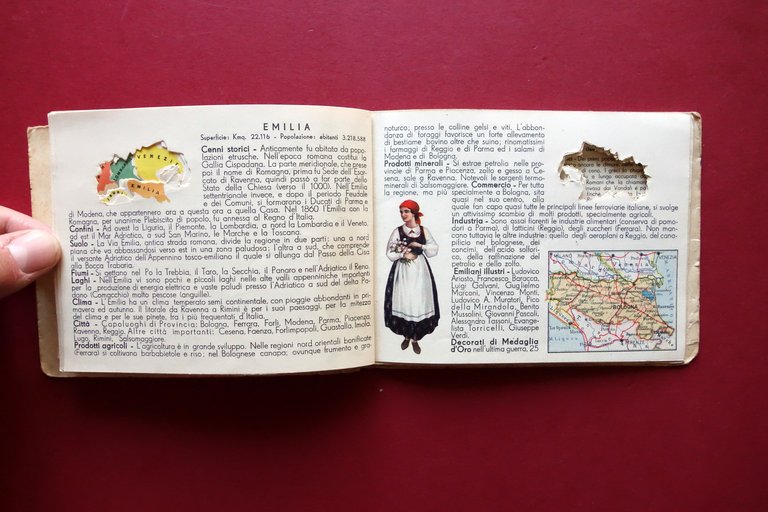 EMILIA
Superficie: Kmq. 22.116 - Popolazione: abitanti 3.218.588
VENEZIA
EMILIA
Cenni storici - Anticamente fu abitata da popo-
lazioni etrusche. Nell'epoca romana costituì la
Gallia Cispadana. La parte meridionale, che prese
poi il nome di Romagna, prima fu Sede dell'Esar-
cato di Ravenna, quindi passò a far parte dello
Stato della Chiesa (verso il 1000). Nell'Emilia
settentrionale invece, e dopo il periodo Feudale
e dei Comuni, si formarono i Ducati di Parma e
di Modena, che appartennero ora a questa ora a quella Casa. Nel 1860 l'Emilia con la
Romagna, per unanime Plebiscito di popolo, fu annessa al Regno d'Italia.
Confini - Ad ovest la Liguria, il Piemonte, la Lombardia, a nord la Lombardia e il Veneto,
ad est il Mar Adriatico, a sud San Marino, le Marche e la Toscana.
Suolo - La Via Emilia, antica strada romana, divide la regione in due parti: una a nord
piana che va abbassandosi verso est in una zona paludosa; l'altra a sud, che comprende
il versante Adriatico dell'Appennino tosco-emiliano il quale si allunga dal Passo della Cisa
alla Bocca Trabaria.
Fiumi - Si gettano nel Po la Trebbia, il Taro, la Secchia, il Panaro e nell'Adriatico il Reno.
Laghi - Nell'Emilia vi sono pochi e piccoli laghi nelle alte valli appenniniche importanti
per la produzione di energia elettrica e vaste paludi presso l'Adriatico a sud del delta Pa-
dano (Comacchio) molto pescose (anguille).
Clima - L'Emilia ha un clima temperato semi continentale, con piogge abbondanti in pri-
mavera ed autunno. Il litorale da Ravenna a Rimini è per i suoi paesaggi, per la mitezza
del clima e per le sue pinete, tra i più frequentati d'Italia.
Città - Capoluoghi di Provincia: Bologna, Ferrara, Forlì, Modena, Parma, Piacenza,
Ravenna, Reggio. Altre città importanti: Cesena, Faenza, Forlimpopoli, Guastalla, Imola,
Lugo, Rimini, Salsomaggiore.
Prodotti agricoli - L'agricoltura è in grande sviluppo. Nelle regioni nord orientali bonificate
(Ferrara) si coltivano barbabietole e riso; nel Bolognese canapa; ovunque frumento e gra-
noturco; presso le colline gelsi e viti. L'abbon-
danza di foraggi favorisce un forte allevamento
di bestiame bovino oltre che suino; rinomatissimi
i formaggi di Reggio e di Parma ed i salami di
Modena e di Bologna.
Prodotti minerali - Si estrae petrolio nelle pro-
vincie di Parma e Piacenza, zolfo e gesso a Ce-
sena, sale a Ravenna. Notevoli le sorgenti termo-
minerali di Salsomaggiore. Commercio - Per tutta
la regione, ma più specialmente a Bologna, sita
quasi nel suo centro, alla
quale fan capo quasi tutte le principali linee ferroviarie italiane, si svolge
un attivissimo scambio di molti prodotti, specialmente agricoli.
Industria - Sono assai fiorenti le industrie alimentari (conserva di pomo-
dori a Parma), di latticini (Reggio), degli zuccheri (Ferrara). Non man-
cano tuttavia le altre industrie, quella degli aeroplani a Reggio, del cano-
pificio nel bolognese, dei
concimi, dell'acido solfori-
co, della raffinazione del
petrolio e dello zolfo.
Emiliani illustri - Ludovico
Ariosto, Francesco Baracca,
Luigi Galvani, Guglielmo
Marconi, Vincenzo Monti,
Ludovico A. Muratori, Pico
della Mirandola, Benito
Mussolini, Giovanni Pascoli,
Alessandro Tassoni, Evange-
lista Torricelli, Giuseppe
Verdi.
Decorati di Medaglia
d'Oro nell'ultima guerra, 25
MILANO
VENEZIA
BOLOGNA
FIRENZE